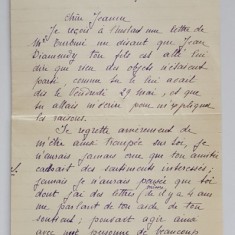 Chère Jeanne
Je reçois à l'instant une lettre de
Mr me disant que Jean
ton fils est allé lui
dire que rien des objets n'étaient
parti, comme tu le lui avait
dit le Vendredi 29 mai, et que
tu allais m'écrire pour m'expliquer
les raisons.
Je regrette amèrement de
m'être ainsi trompée sur toi, je
n'aurais jamais cru que ton amitié
cachait des sentiments intéressés;
jamais je n'aurais pensée que toi
dont j'ai des lettres d'il y a 4 ans
me parlant de ton aide de ton
soutien; pensait agir ainsi
avec une personne de beaucoup